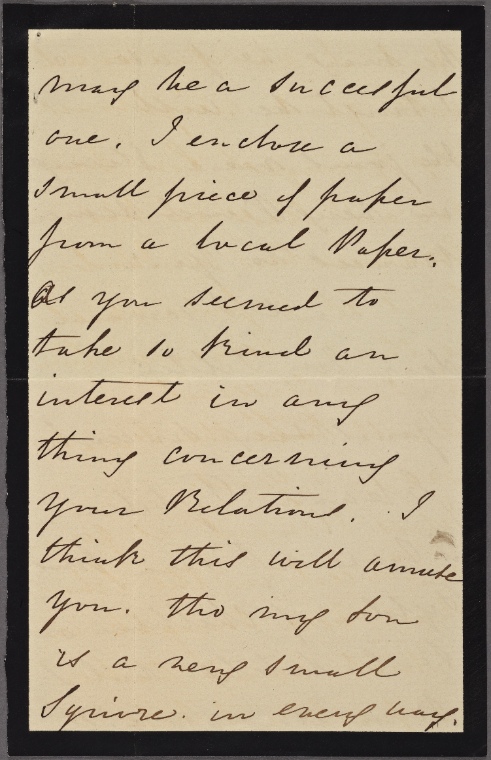 may be a succesful
one. I enclose a
small piece of paper
from a local Paper.
as you seemed to
take so kind an
interest in any
thing concerning
your Relations. I
think this will amuse
you. tho my son
is a very small
Squire. in every way.